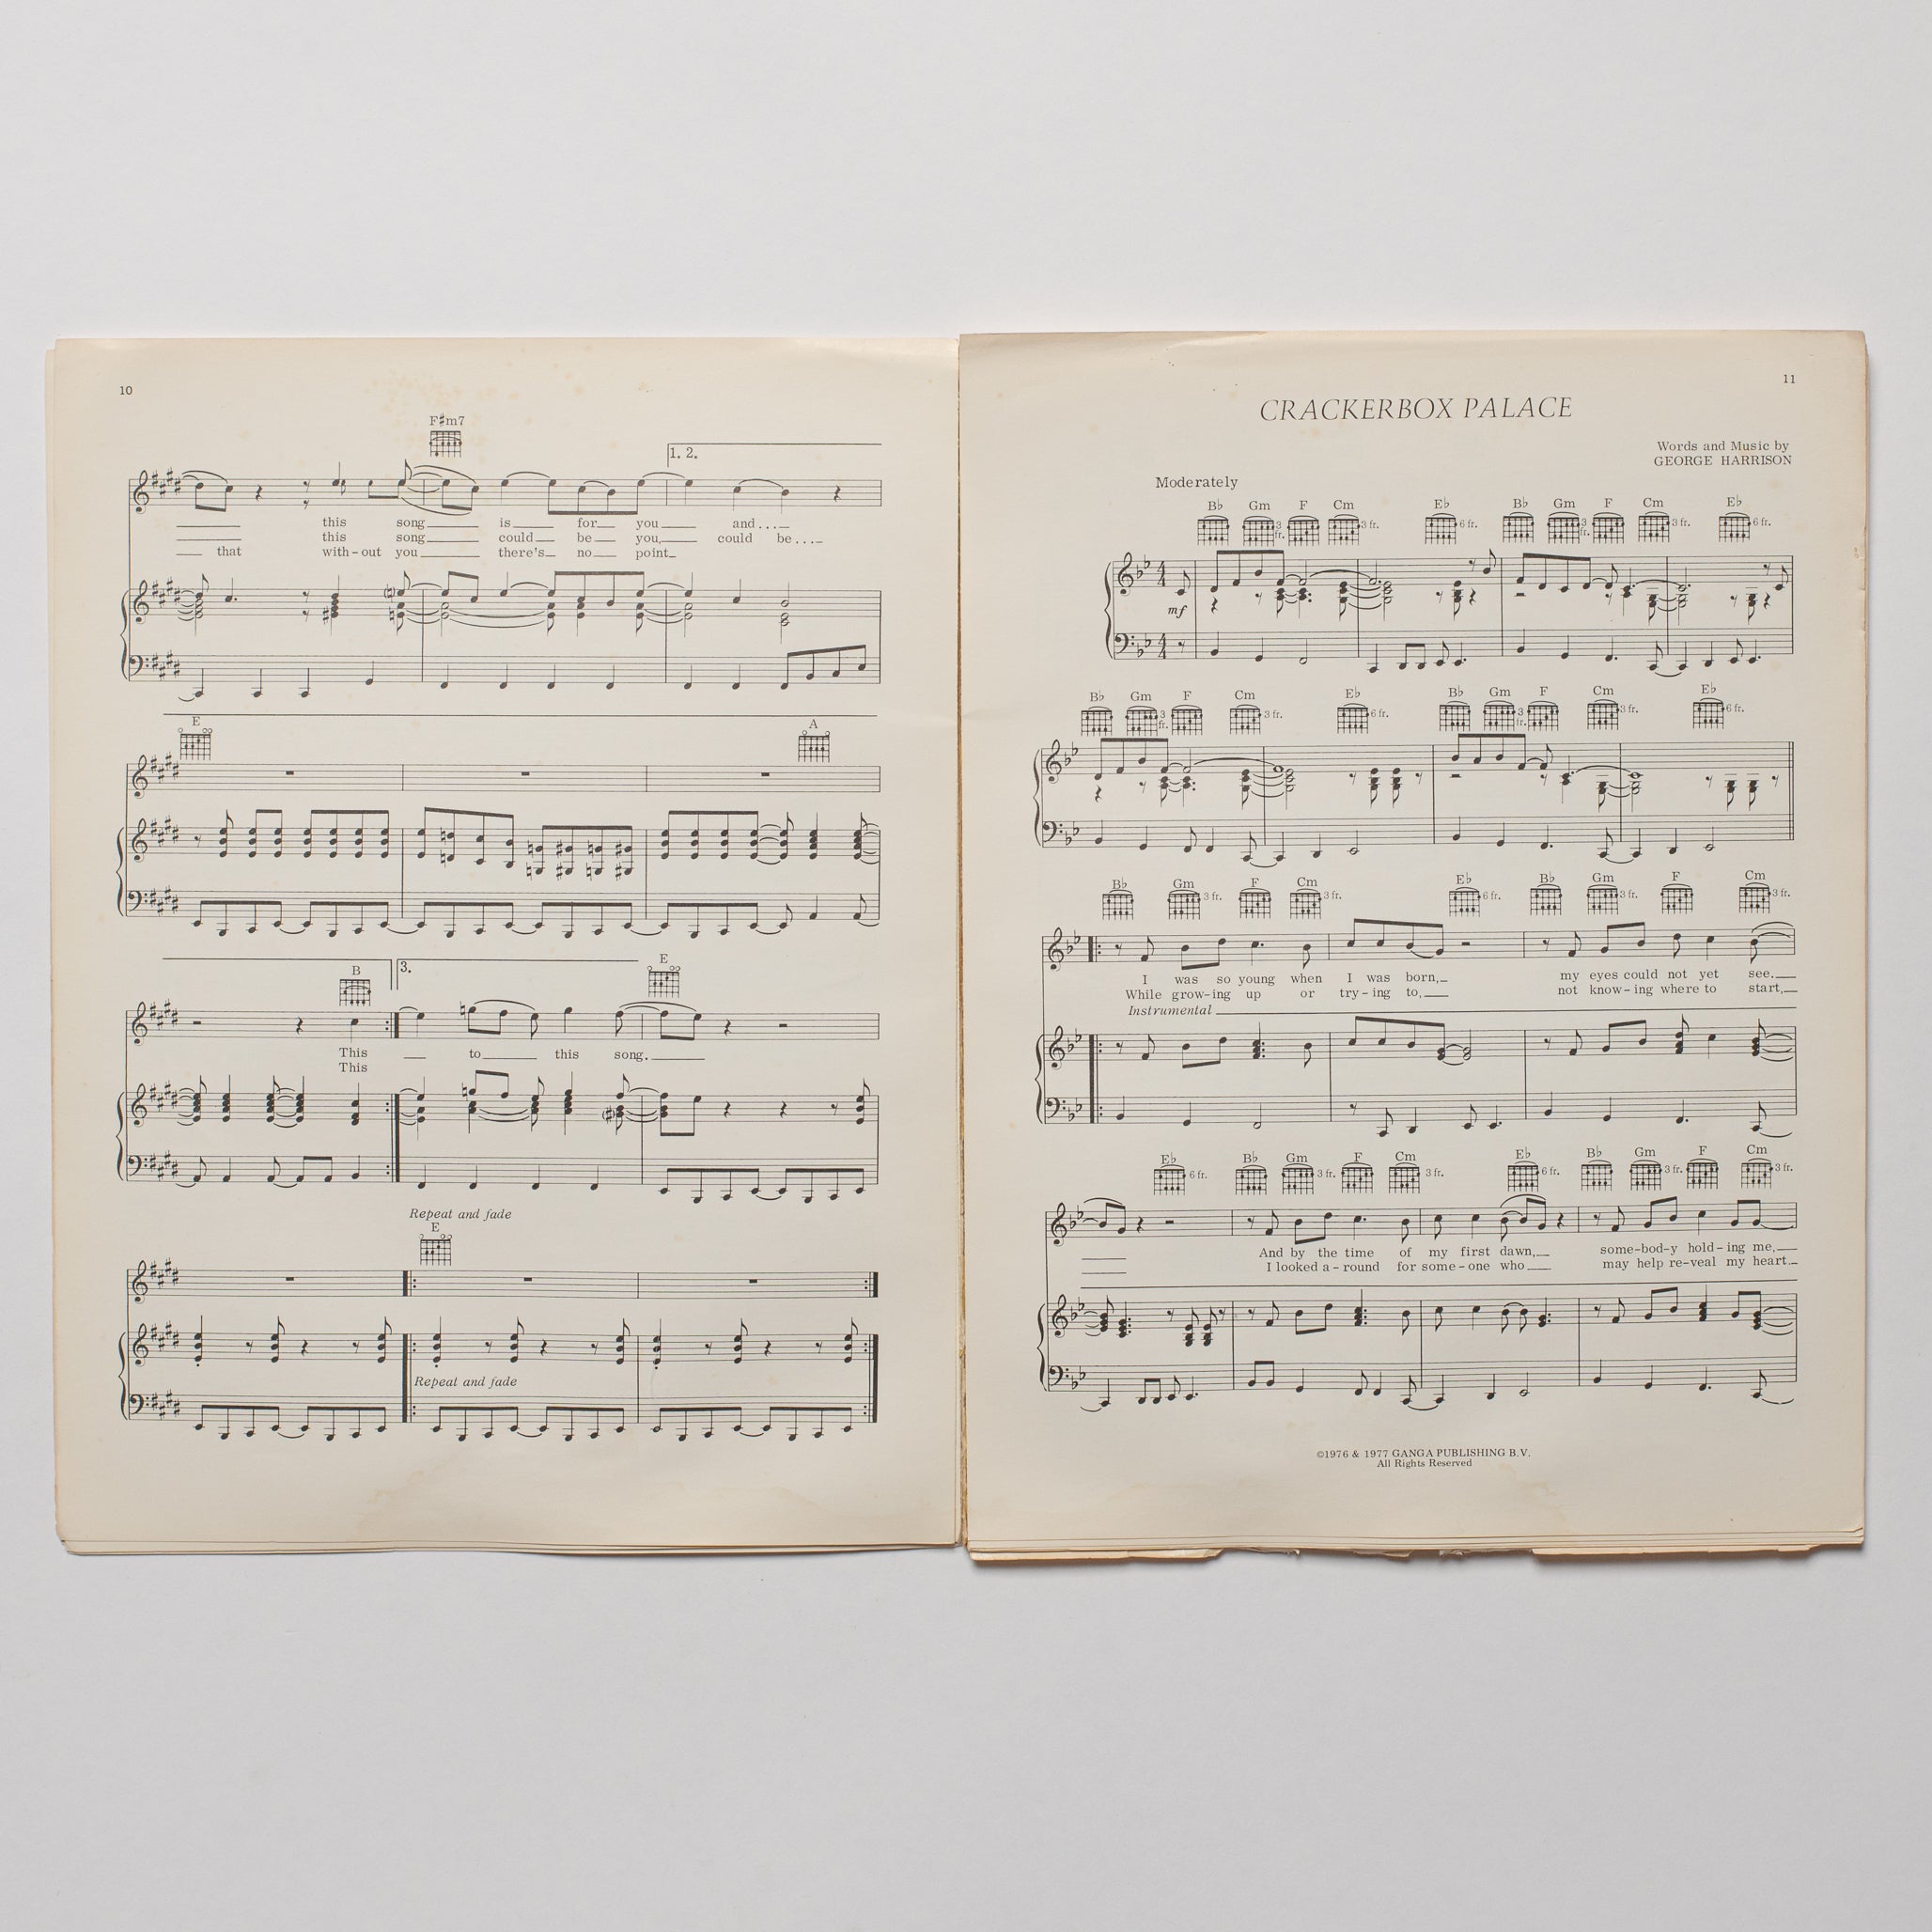 10
F♯m7
1. 2.
this song is for you and...
this song could be you, could be...
that with-out you there's no point
E A
B 3. E
This to this song.
This
Repeat and fade
E
Repeat and fade
11
CRACKERBOX PALACE
Words and Music by
GEORGE HARRISON
Moderately
B♭ Gm F Cm E♭ B♭ Gm F Cm E♭
3 fr. 3 fr. 6 fr. 3 fr. 3 fr. 6 fr.
mf
B♭ Gm F Cm E♭ B♭ Gm F Cm E♭
3 fr. 3 fr. 6 fr. 3 fr. 3 fr. 6 fr.
B♭ Gm F Cm E♭ B♭ Gm F Cm
3 fr. 3 fr. 6 fr. 3 fr. 3 fr.
I was so young when I was born, my eyes could not yet see.
While grow-ing up or try-ing to, not know-ing where to start,
Instrumental
E♭ B♭ Gm F Cm E♭ B♭ Gm F Cm
6 fr. 3 fr. 3 fr. 6 fr. 3 fr. 3 fr.
And by the time of my first dawn, some-bod-y hold-ing me,
I looked a-round for some-one who may help re-veal my heart
©1976 & 1977 GANGA PUBLISHING B.V.
All Rights Reserved